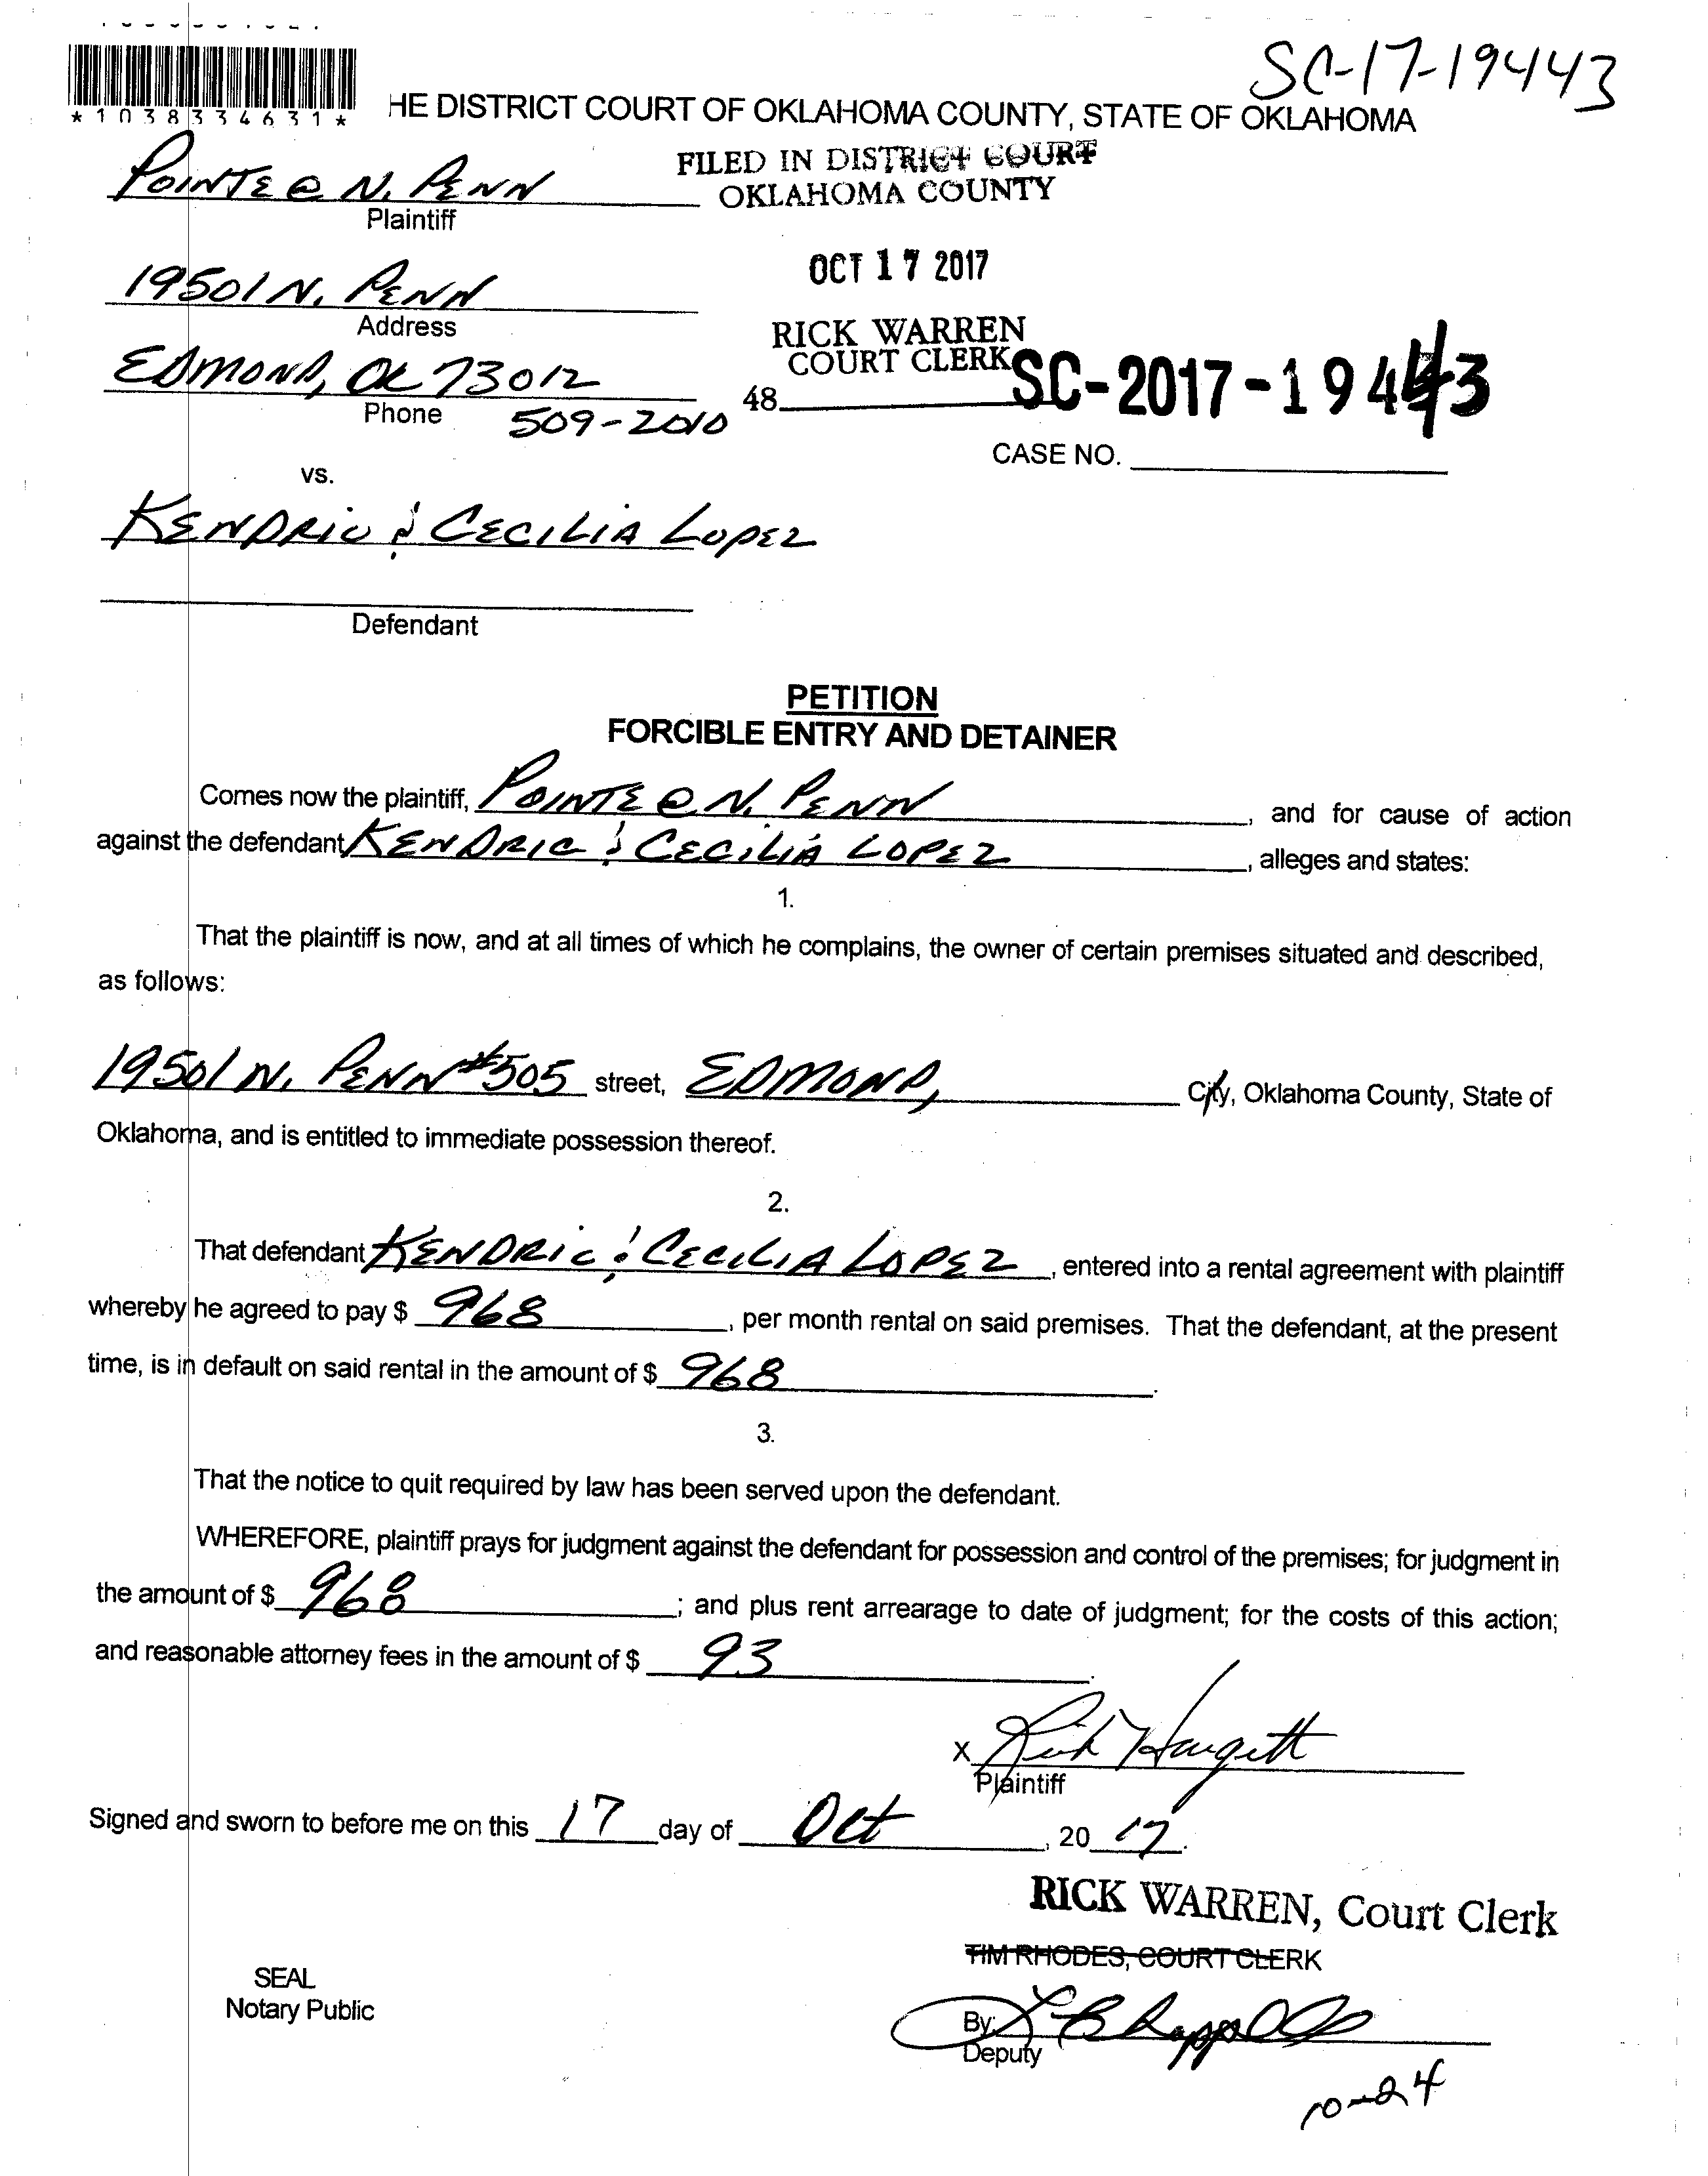 SC-17-19443
*1038334631*
HE DISTRICT COURT OF OKLAHOMA COUNTY, STATE OF OKLAHOMA
POINTE @ N. PENN
Plaintiff
FILED IN DISTRICT COURT
OKLAHOMA COUNTY
19501 N. PENN
Address
OCT 17 2017
EDMOND, OK 73012
Phone 509-2010
RICK WARREN
COURT CLERK
48
SC-2017-19443
CASE NO.
vs.
KENDRIC & CECILIA LOPEZ
Defendant
PETITION
FORCIBLE ENTRY AND DETAINER
Comes now the plaintiff, POINTE @ N. PENN, and for cause of action
against the defendant KENDRIC & CECILIA LOPEZ, alleges and states:
1.
That the plaintiff is now, and at all times of which he complains, the owner of certain premises situated and described,
as follows:
19501 N. PENN #505 street, EDMOND, City, Oklahoma County, State of
Oklahoma, and is entitled to immediate possession thereof.
2.
That defendant KENDRIC & CECILIA LOPEZ, entered into a rental agreement with plaintiff
whereby he agreed to pay $ 968, per month rental on said premises. That the defendant, at the present
time, is in default on said rental in the amount of $ 968.
3.
That the notice to quit required by law has been served upon the defendant.
WHEREFORE, plaintiff prays for judgment against the defendant for possession and control of the premises; for judgment in
the amount of $ 968; and plus rent arrearage to date of judgment; for the costs of this action;
and reasonable attorney fees in the amount of $ 93.
X Rick Hargett
Plaintiff
Signed and sworn to before me on this 17 day of Oct, 20 17.
RICK WARREN, Court Clerk
TIM RHODES, COURT CLERK
SEAL
Notary Public
By:
Deputy
10-24